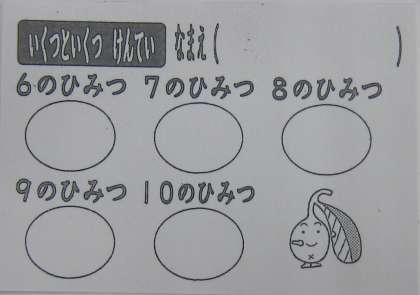 いくつといくつ けんてい なまえ( )
6のひみつ 7のひみつ 8のひみつ
9のひみつ 10のひみつ